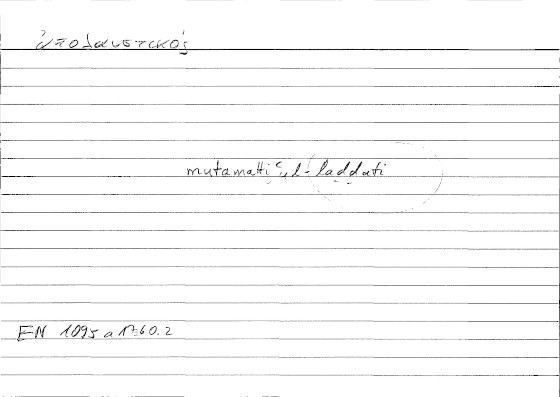 ἀπολαυστικός
mutamattiʿ, l-laḏḏati
EN 1095 a 17 = 60.2